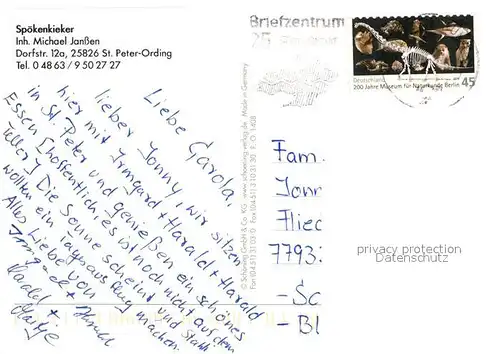 Spökenkieker
Inh. Michael Janßen
Dorfstr. 12a, 25826 St. Peter-Ording
Tel. 0 48 63 / 9 50 27 27
Briefzentrum
25
Deutschland
45
200 Jahre Museum für Naturkunde Berlin
Liebe Carola,
lieber Jonny, wir sitzen
hier mit Irmgard + Harald
in St. Peter und genießen ein schönes
Essen (hoffentlich, es ist noch nicht auf dem
Teller) Die Sonne scheint und
wollen ein Tagesausflug machen.
Alles Liebe von
Irmgard + Harald
Harald +
© Schöning GmbH & Co. KG · www.schoening-verlag.de · Made in Germany
Fam.
Jonn
Flied
7793
- Sc
- Bl
privacy protection
Datenschutz